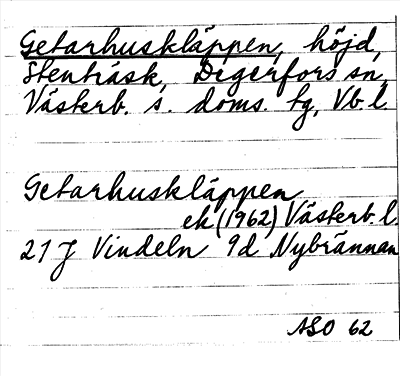 Getarhuskläppen, höjd,
Stenträsk, Degerfors sn,
Västerb. s. doms. tg, Vb l.
Getarhuskläppen
ek (1962) Västerb. l.
21 J Vindeln 9d Nybrännan
ASO 62